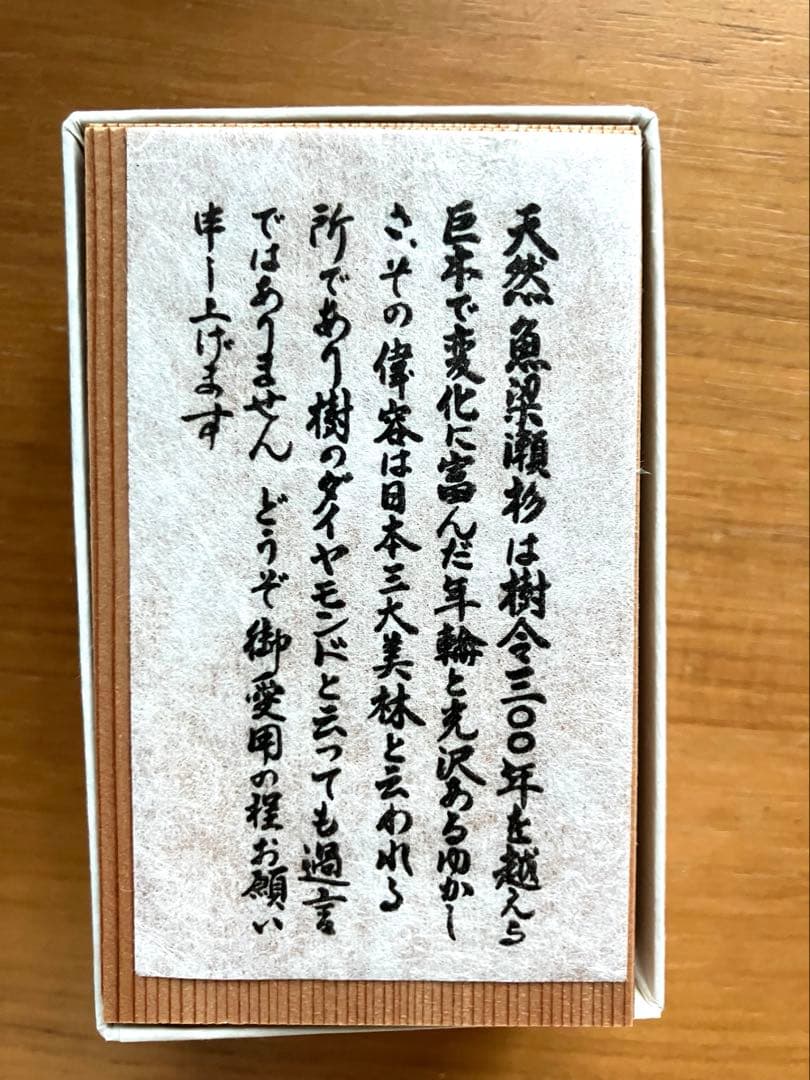 天然魚梁瀬杉は樹令三〇〇年を越える
巨木で変化に富んだ年輪と光沢あるゆかし
さ、その偉容は日本三大美林と云われる
所であり樹のダイヤモンドと云っても過言
ではありません どうぞ御愛用の程お願い
申し上げます